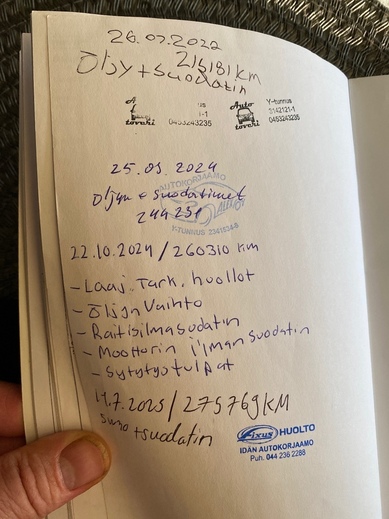 26.07.2022
216181 KM
Öljy + suodatin
Auto
tovari
0453243235
Y-tunnus
3142121-1
0453243235
25.03.2024
AUTOKORJAAMO
Öljyn + suodattimet
244251
Y-TUNNUS
22.10.2024 / 260310 km
- Laaj. Tark. huollot
- Öljyn Vaihto
- Raitisilmasuodatin
- Moottorin ilman suodatin
- Sytytystulpat
14.7.2025 / 275769KM
+suodatin
Fixus HUOLTO
IDÄN AUTOKORJAAMO
Puh. 044 236 2288